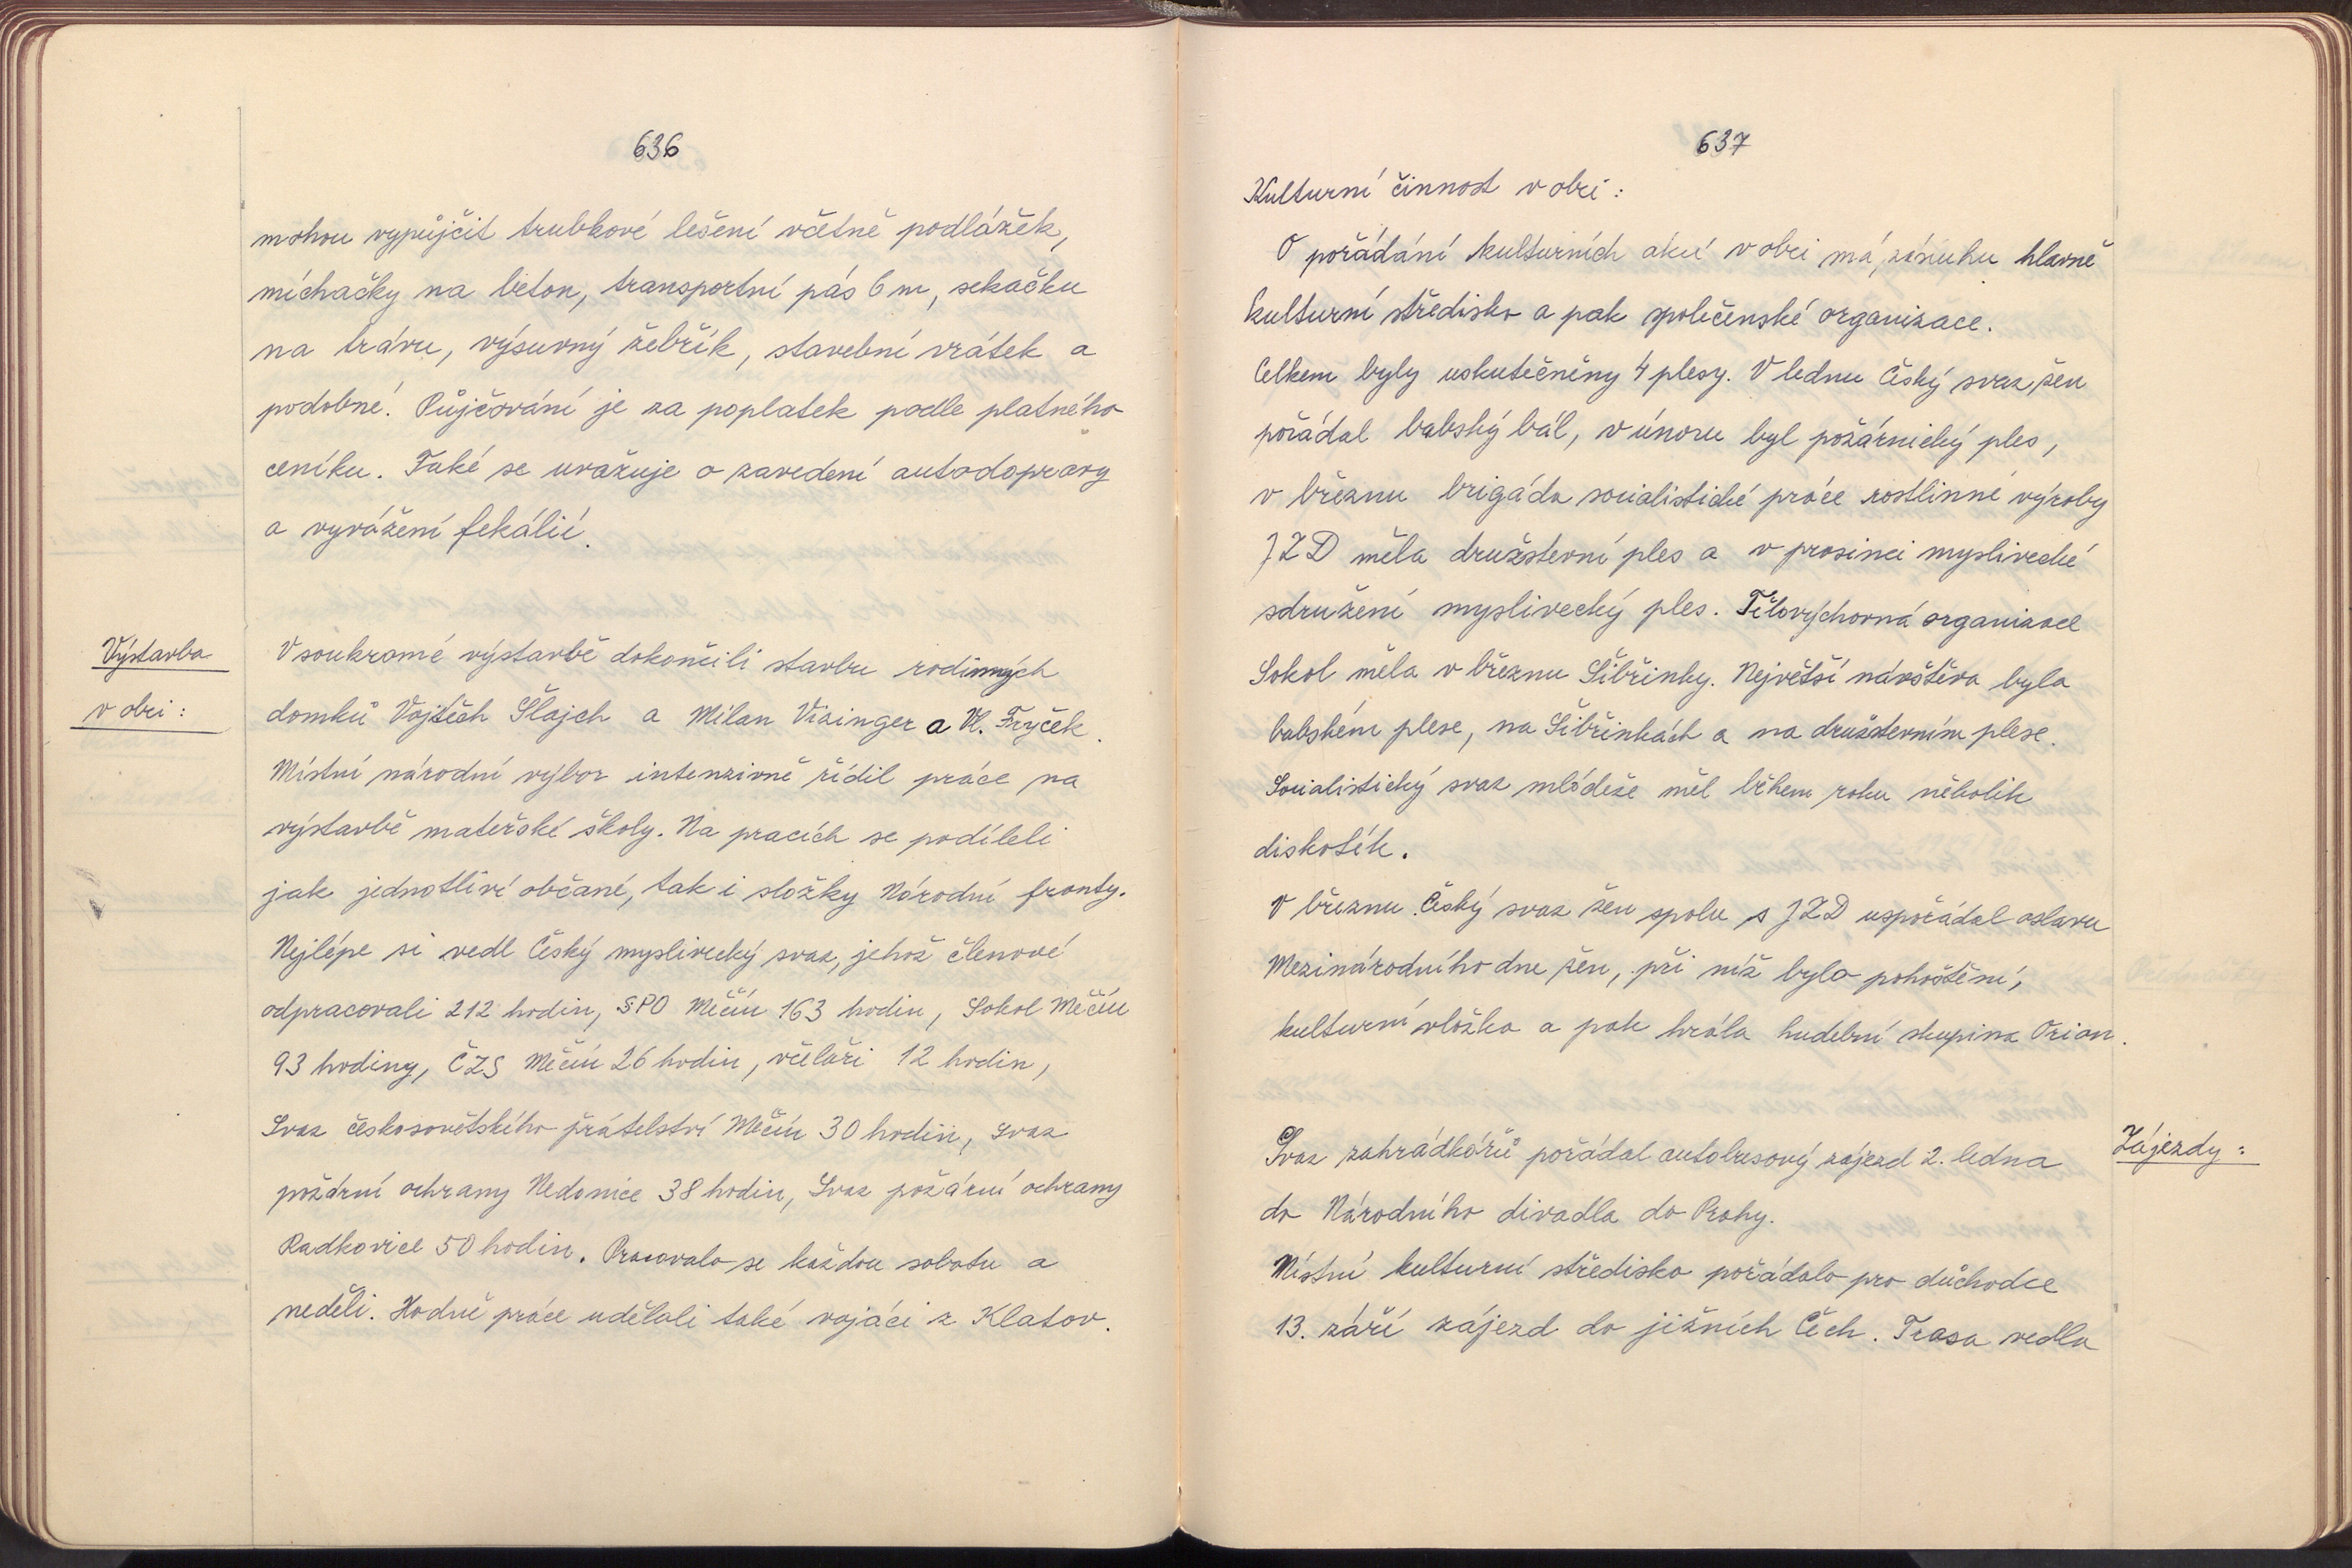 636
mohou vypůjčit trubkové lešení včetně podlážek,
míchačky na beton, transportní pás 6 m, sekačku
na trávu, výsuvný žebřík, stavební vrátek a
podobné. Půjčování je za poplatek podle platného
ceníku. Také se uvažuje o zavedení autodopravy
a vyvážení fekálií.
Výstavba
v obci:
V soukromé výstavbě dokončili stavbu rodinných
domků Vojtěch Šlajch a Milan Vizinger a Vl. Fryček.
Místní národní výbor intenzivně řídil práce na
výstavbě mateřské školy. Na pracích se podíleli
jak jednotliví občané, tak i složky Národní fronty.
Nejlépe si vedl Český myslivecký svaz, jehož členové
odpracovali 212 hodin, SPO Měčín 163 hodin, Sokol Měčín
93 hodiny, ČZS Měčín 26 hodin, včelaři 12 hodin,
Svaz československo­větského přátelství Měčín 30 hodin, Svaz
požární ochrany Nedanice 38 hodin, Svaz požární ochrany
Radkovice 50 hodin. Pracovalo se každou sobotu a
neděli. Hodně práce udělali také vojáci z Klatov.
637
Kulturní činnost v obci:
O pořádání kulturních akcí v obci má zásluhu hlavně
kulturní středisko a pak společenské organizace.
Celkem byly uskutečněny 4 plesy. V lednu Český svaz žen
pořádal babský bál, v únoru byl požárnický ples,
v březnu brigáda socialistické práce rostlinné výroby
JZD měla družstevní ples a v prosinci myslivecké
sdružení myslivecký ples. Tělovýchovná organizace
Sokol měla v březnu Šibřinky. Největší návštěva byla
babském plese, na Šibřinkách a na družstevním plese.
Socialistický svaz mládeže měl během roku několik
diskoték.
V březnu Český svaz žen spolu s JZD uspořádal oslavu
Mezinárodního dne žen, při níž bylo pohoštění,
kulturní vložka a pak hrála hudební skupina Orion.
Zájezdy:
Svaz zahrádkářů pořádal autobusový zájezd 2. ledna
do Národního divadla do Prahy.
Místní kulturní středisko pořádalo pro důchodce
13. září zájezd do jižních Čech. Trasa vedla